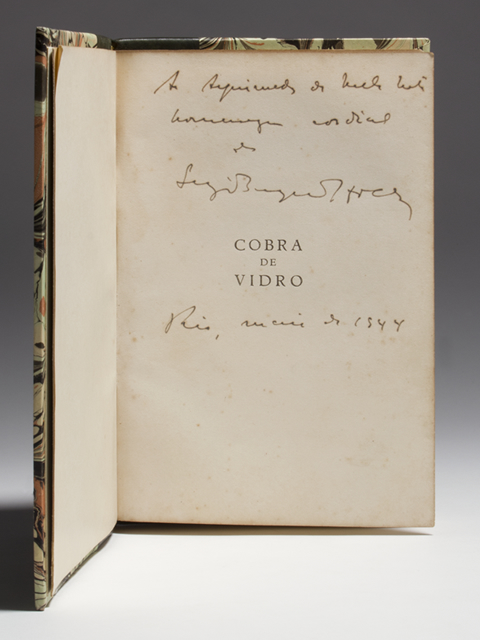 A                 de Mello
homenagem cordial
de
Sergio Buarque de Holanda
COBRA
DE
VIDRO
Rio, maio de 1944